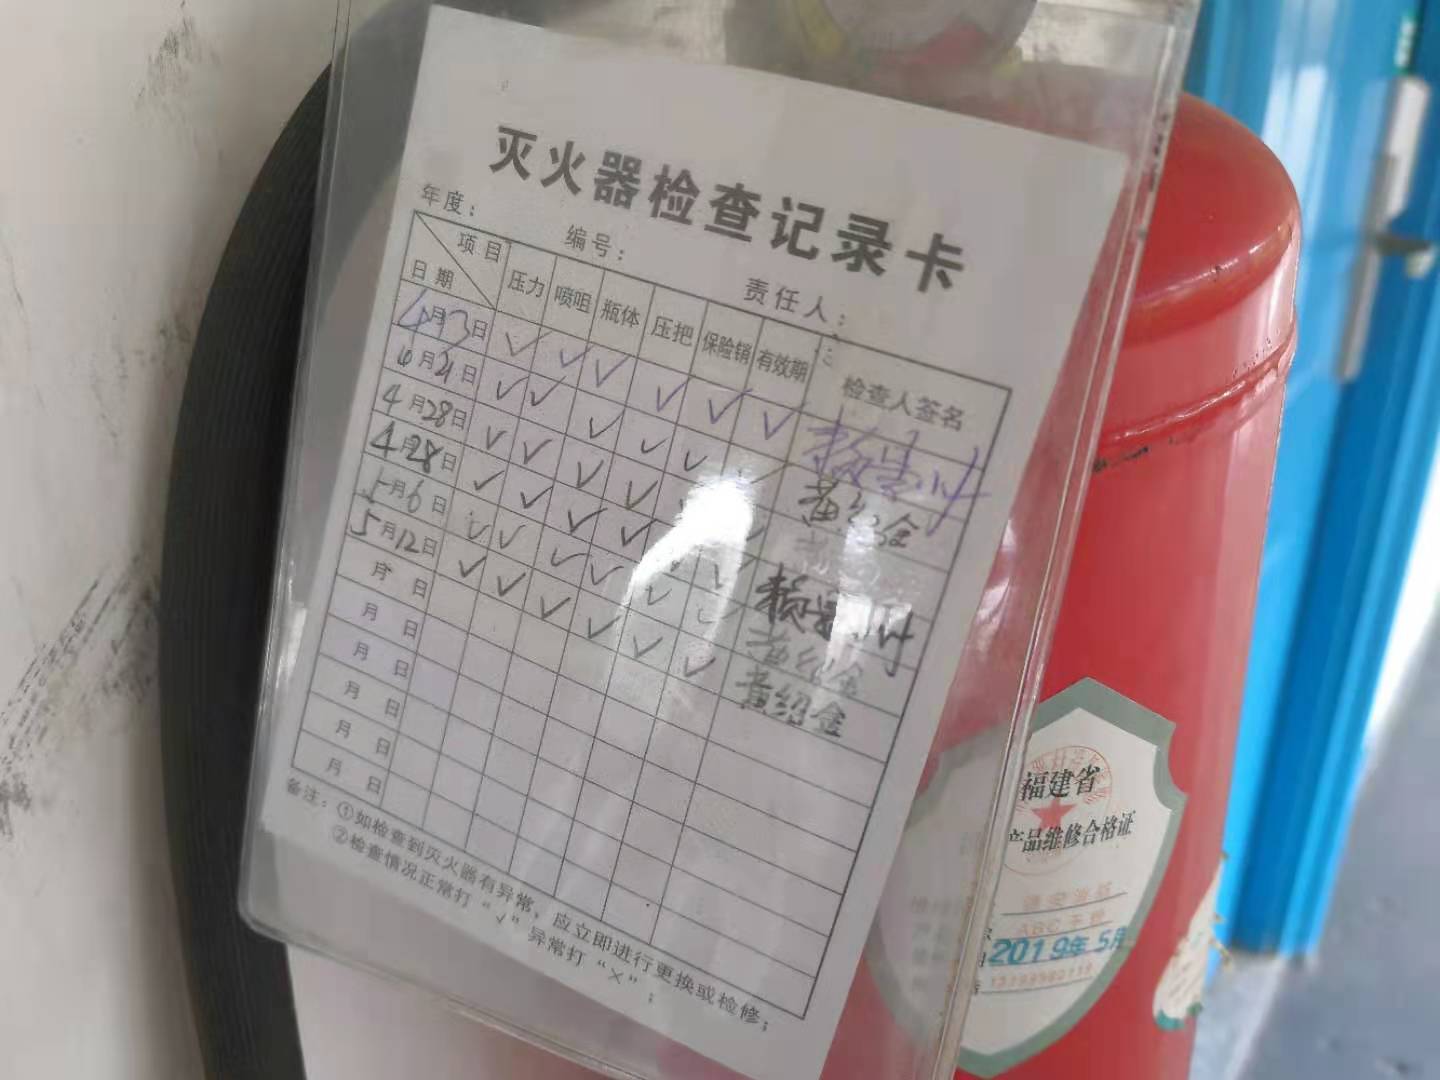 灭火器检查记录卡
年度： 编号： 责任人：
项目 日期 压力 喷咀 瓶体 压把 保险销 有效期 检查人签名
4月3日 ✓ ✓ ✓ ✓ ✓ ✓
4月21日 ✓ ✓ ✓ ✓ ✓ ✓ 黄绍金
4月28日 ✓ ✓ ✓ ✓
4月28日 ✓ ✓ ✓ ✓
5月6日 ✓ ✓ ✓ ✓ ✓ ✓ 黄绍金
5月12日 ✓ ✓ ✓ ✓ ✓ ✓ 黄绍金
月 日
月 日
月 日
月 日
月 日
月 日
备注：①如检查到灭火器有异常，应立即进行更换或检修；
②检查情况正常打“√”异常打“×”；
福建省
产品维修合格证
ABC干粉
2019年5月